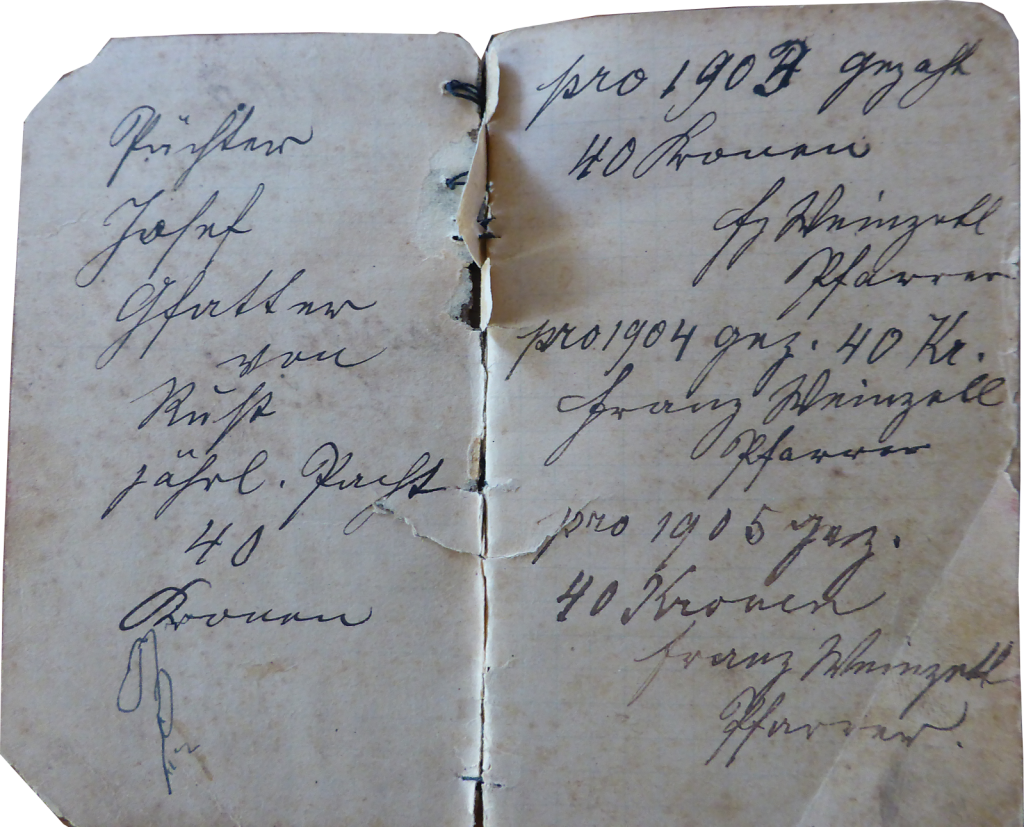 Pächter
Josef
Gfatter
von
Rust
jährl. Pacht
40
Kronen
pro 1903 gezahlt
40 Kronen
Fz Weinzettl
Pfarrer
pro 1904 gez. 40 Kr.
Franz Weinzettl
Pfarrer
pro 1905 gez.
40 Kronen
Franz Weinzettl
Pfarrer.